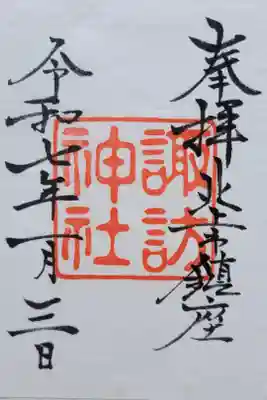 奉拝
鎮座
諏訪
神社
令和七年一月三日